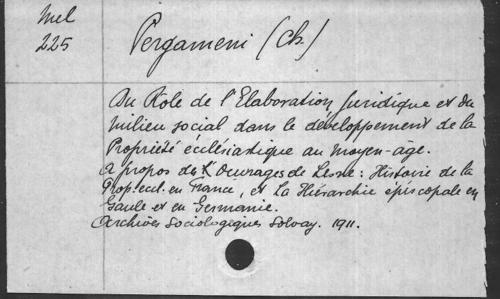 Mel
225
Pergameni (Ch.)
Du Role de l'Elaboration Juridique et du
milieu social dans le développement de la
Propriété ecclésiastique au moyen-âge.
A propos de l'Ouvrages de Lesne: Histoire de la
Prop. eccl. en France, et La Hiérarchie épiscopale en
Gaule et en Germanie.
Archives Sociologiques Solvay. 1911.